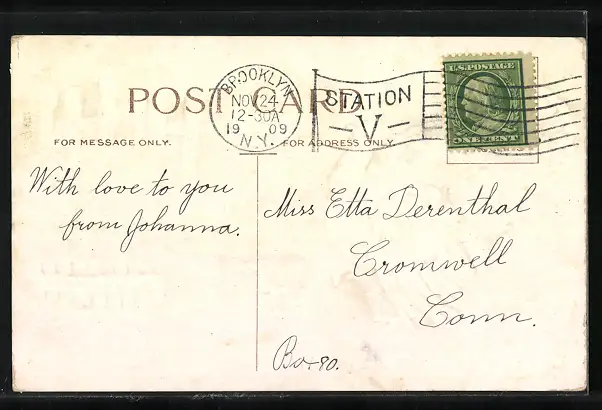 POST CARD
BROOKLYN
NOV 24
12-30A
19 09
N.Y.
STATION
V
U.S. POSTAGE
ONE CENT
FOR MESSAGE ONLY.
FOR ADDRESS ONLY.
With love to you
from Johanna.
Miss Etta Derenthal
Cromwell
Conn.
Box 80.